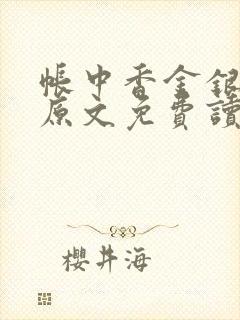 帳中香金銀
原文免費讀
櫻井海